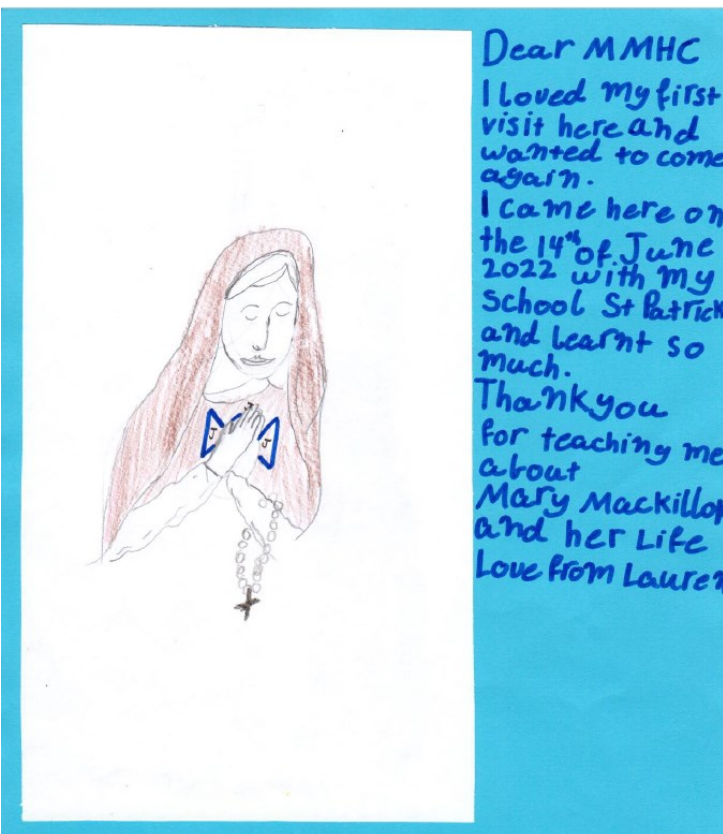 Dear MMHC
I loved my first
visit here and
wanted to come
again.
I came here on
the 14th of June
2022 with my
School St Patrick
and learnt so
much.
Thankyou
for teaching me
about
Mary Mackillop
and her Life
Love from Lauren
J
J
J